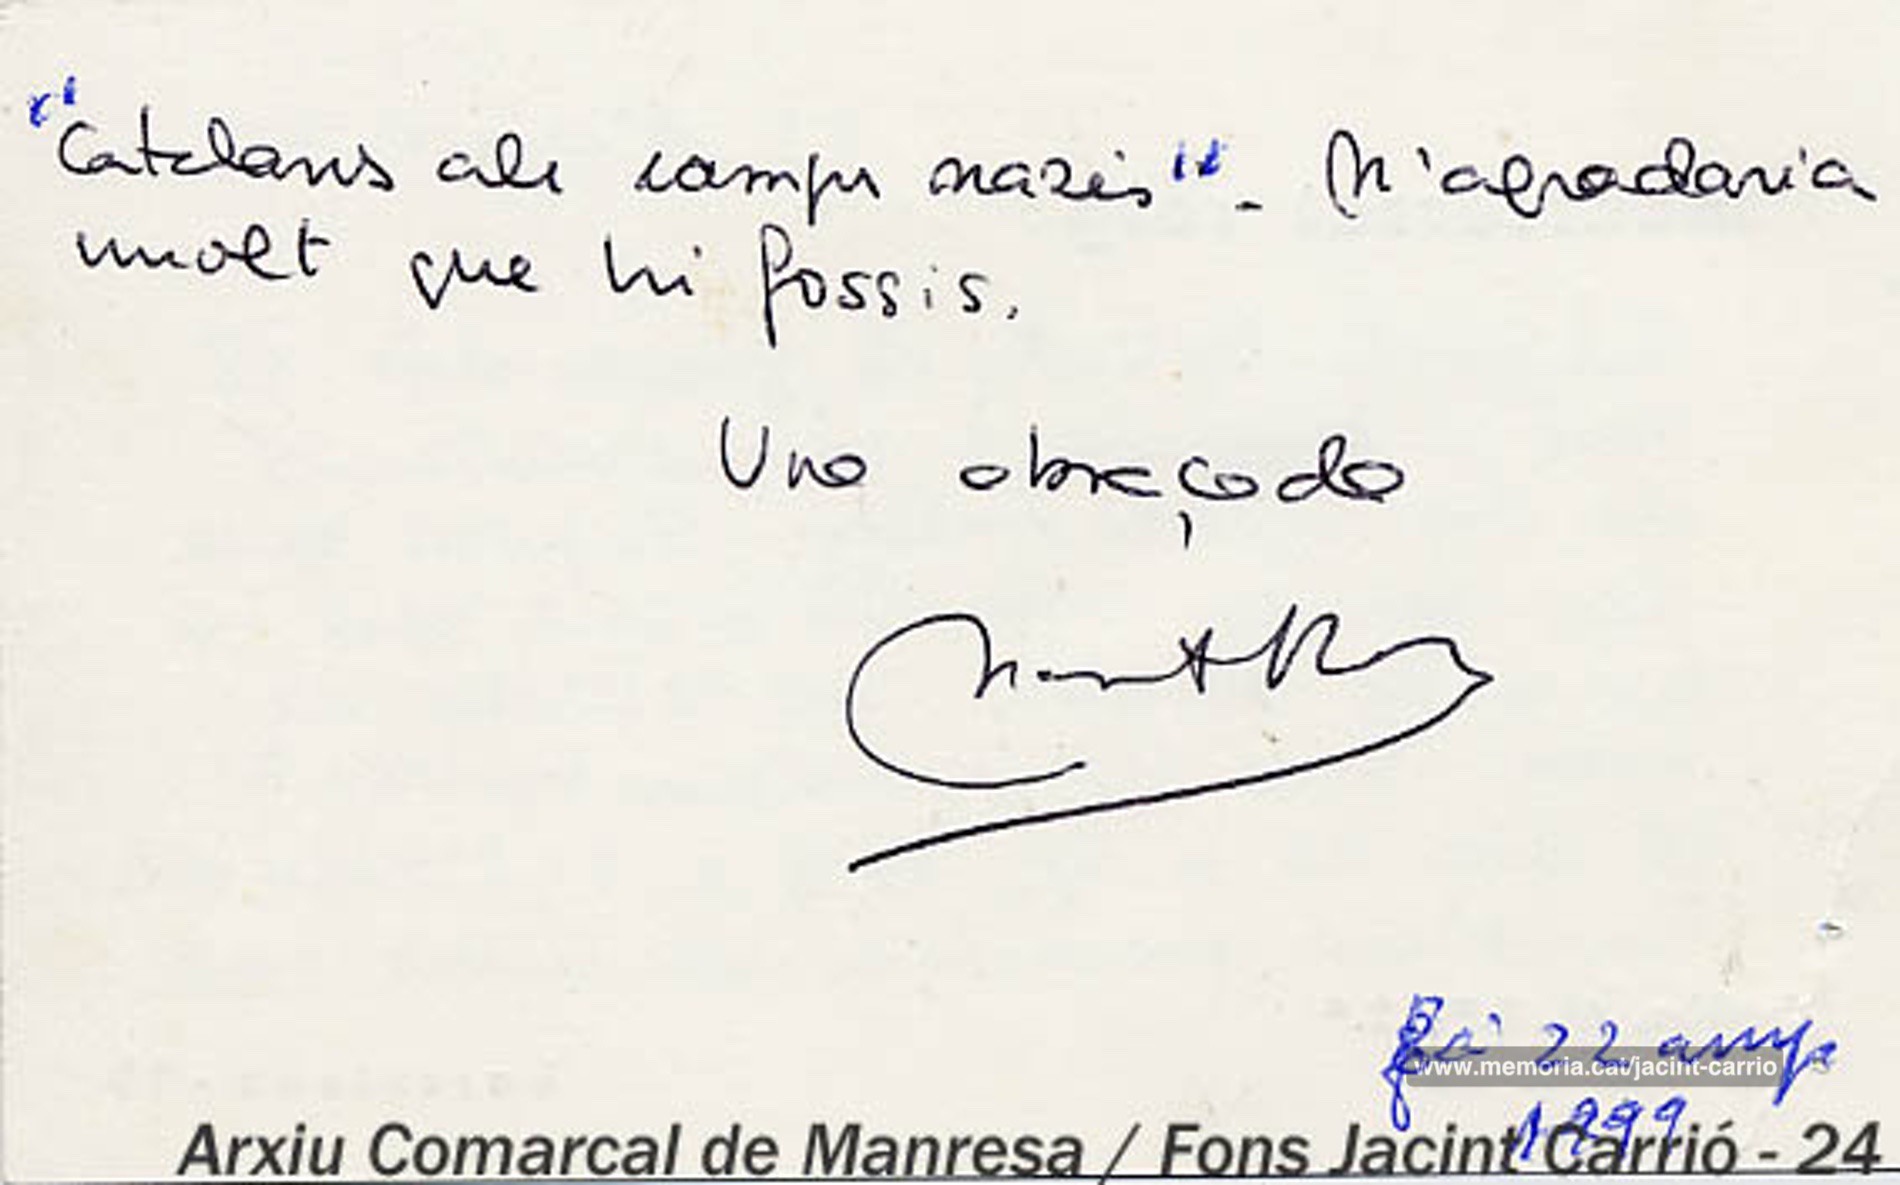 "Catalans als camps nazis". M'agradaria
molt que hi fossis.
Una abraçada
Montt Roig
Fa 22 anys
www.memoria.cat/jacint-carrio
1999
Arxiu Comarcal de Manresa / Fons Jacint Carrió - 24